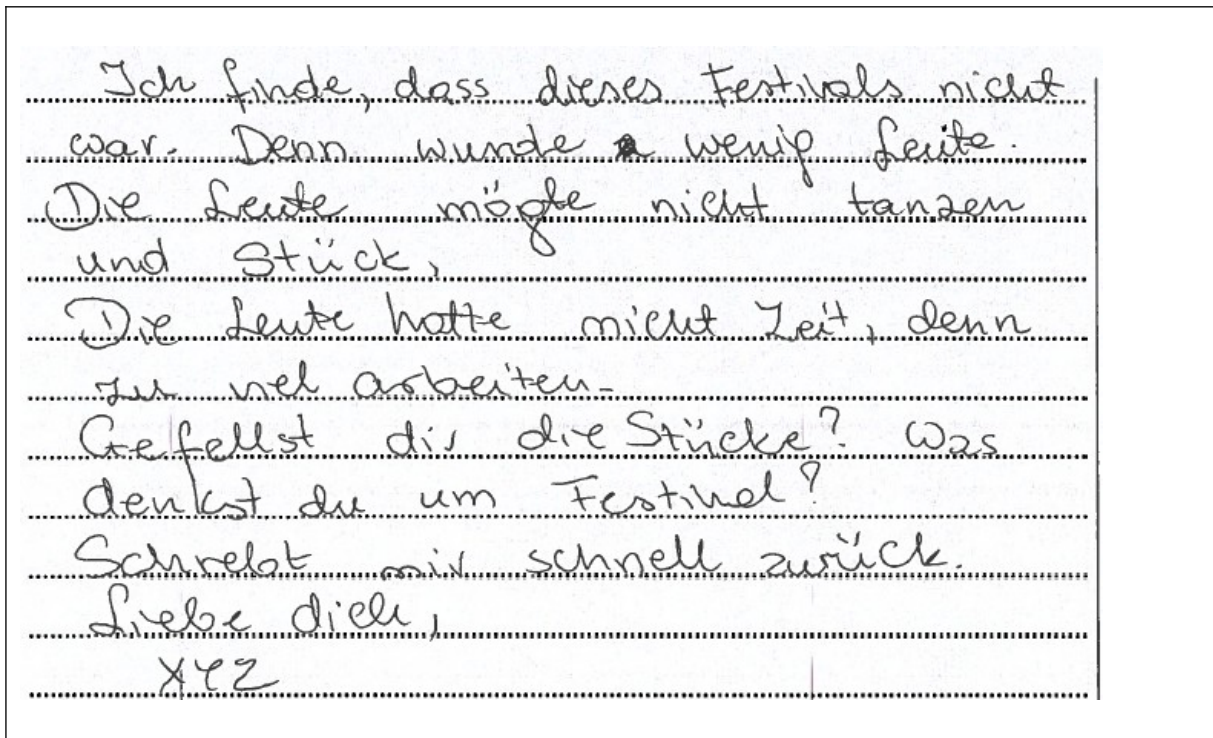 Ich finde, dass dieses Festivals nicht
war. Denn wunde wenig Leute.
Die Leute mögte nicht tanzen
und Stück,
Die Leute hatte nicht Zeit, denn
zu viel arbeiten.
Gefellst dir die Stücke? Was
denkst du um Festival?
Schrebt mir schnell zurück.
Liebe dich,
XYZ